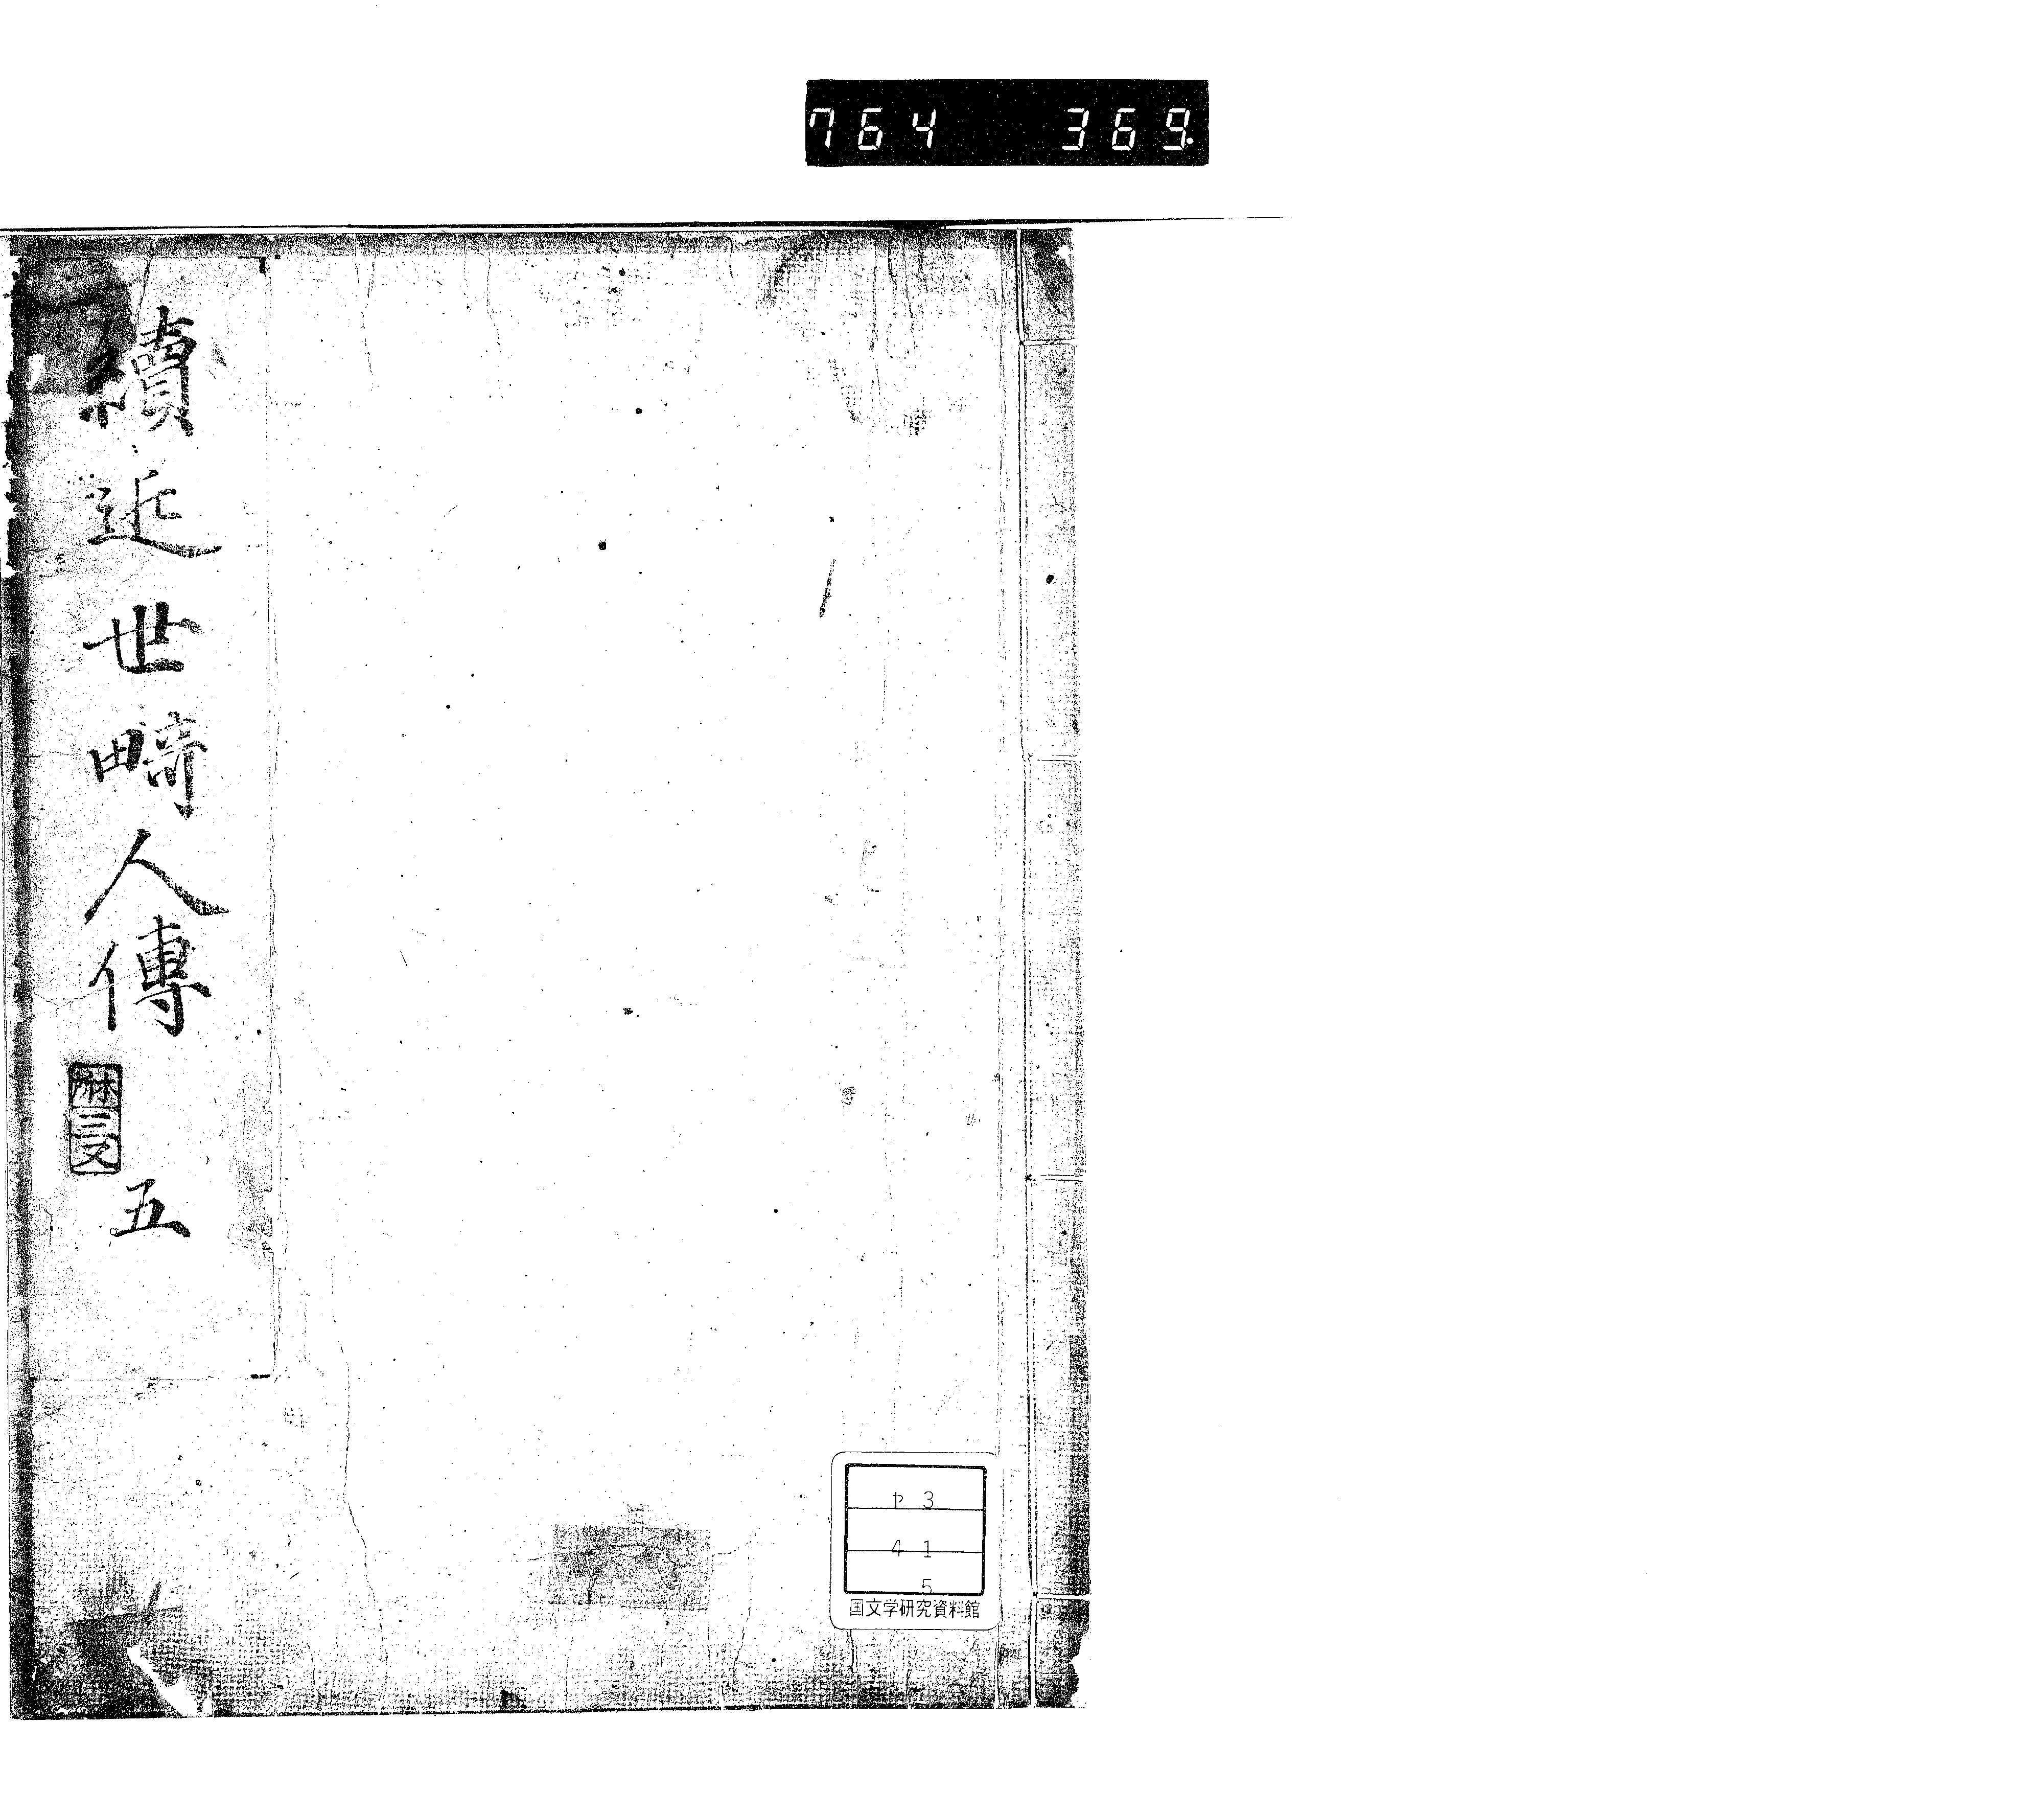 764 369
續近世畸人傳
五
ヤ3
41
5
国文学研究資料館